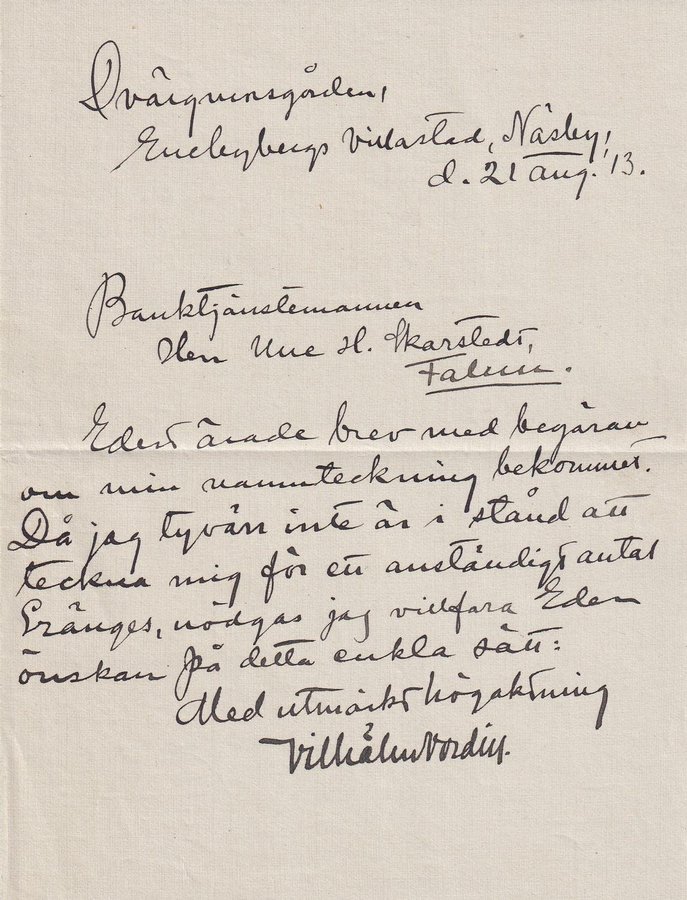 Dvärgvinsgården,
Enebybergs Villastad, Näsby,
d. 21 Aug. 13.
Banktjänstemannen
Herr Une H. Skarstedt,
Falun.
Edert ärade brev med begäran
om min namnteckning bekommet.
Då jag tyvärr inte är i stånd att
teckna mig för ett anständigt antal
Gränges, nödgas jag villfara Eder
önskan på detta enkla sätt:
Med utmärkt högaktning
Vilhälm Nordin.